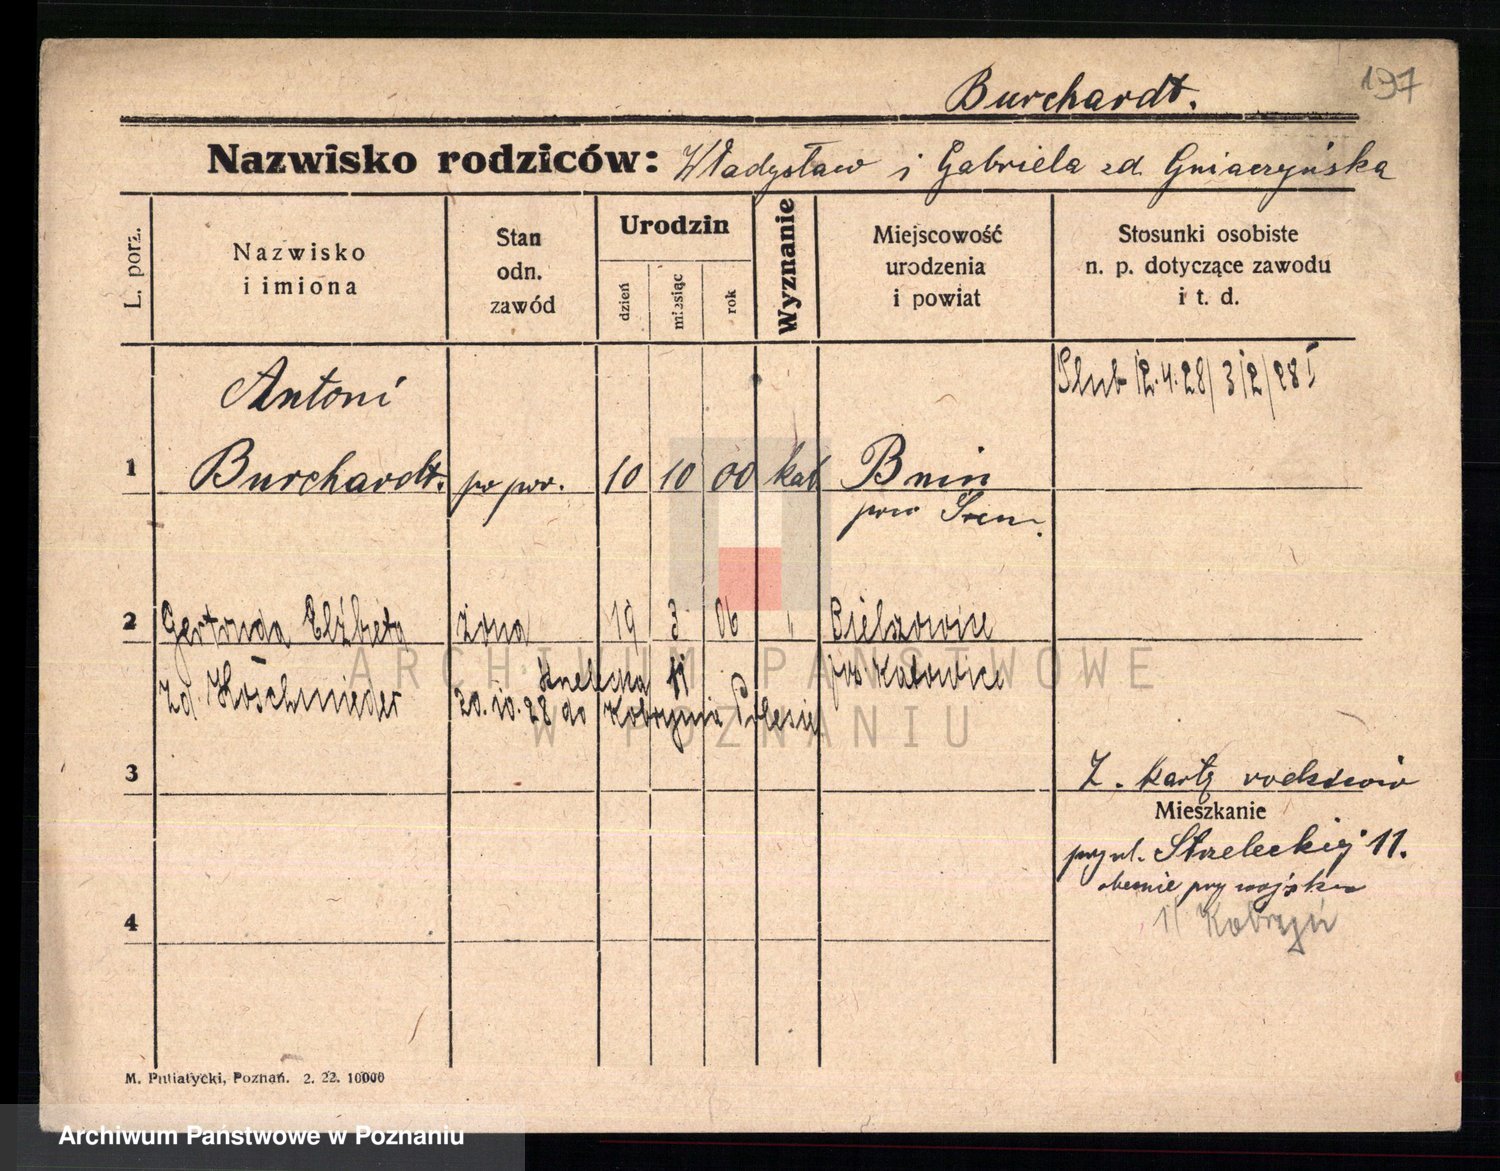 197
Burchardt.
Nazwisko rodziców: Władysław i Gabriela zd. Gniaczyńska
L. porz.
Nazwisko
i imiona
Stan
odn.
zawód
Urodzin
dzień
miesiąc
rok
Wyznanie
Miejscowość
urodzenia
i powiat
Stosunki osobiste
n. p. dotyczące zawodu
i t. d.
Ślub 12.4.28/3/2/28 I
Antoni
1 Burchardt. 10 10 00 kat Bnin
pow Śrem.
2 Gertruda Elżbieta żona 19 3 06 " Bielszowice
Katowice
zd. Koschmieder
Strzelecka 11
20.10.28 do Kobrynia Polesie
3
Z. karty rodziców
Mieszkanie
przy ul. Strzeleckiej 11.
obecnie przy wojsku
Kobryń
4
M. Putiatycki, Poznań. 2. 22. 10000
ARCHIWUM PAŃSTWOWE
W POZNANIU
Archiwum Państwowe w Poznaniu